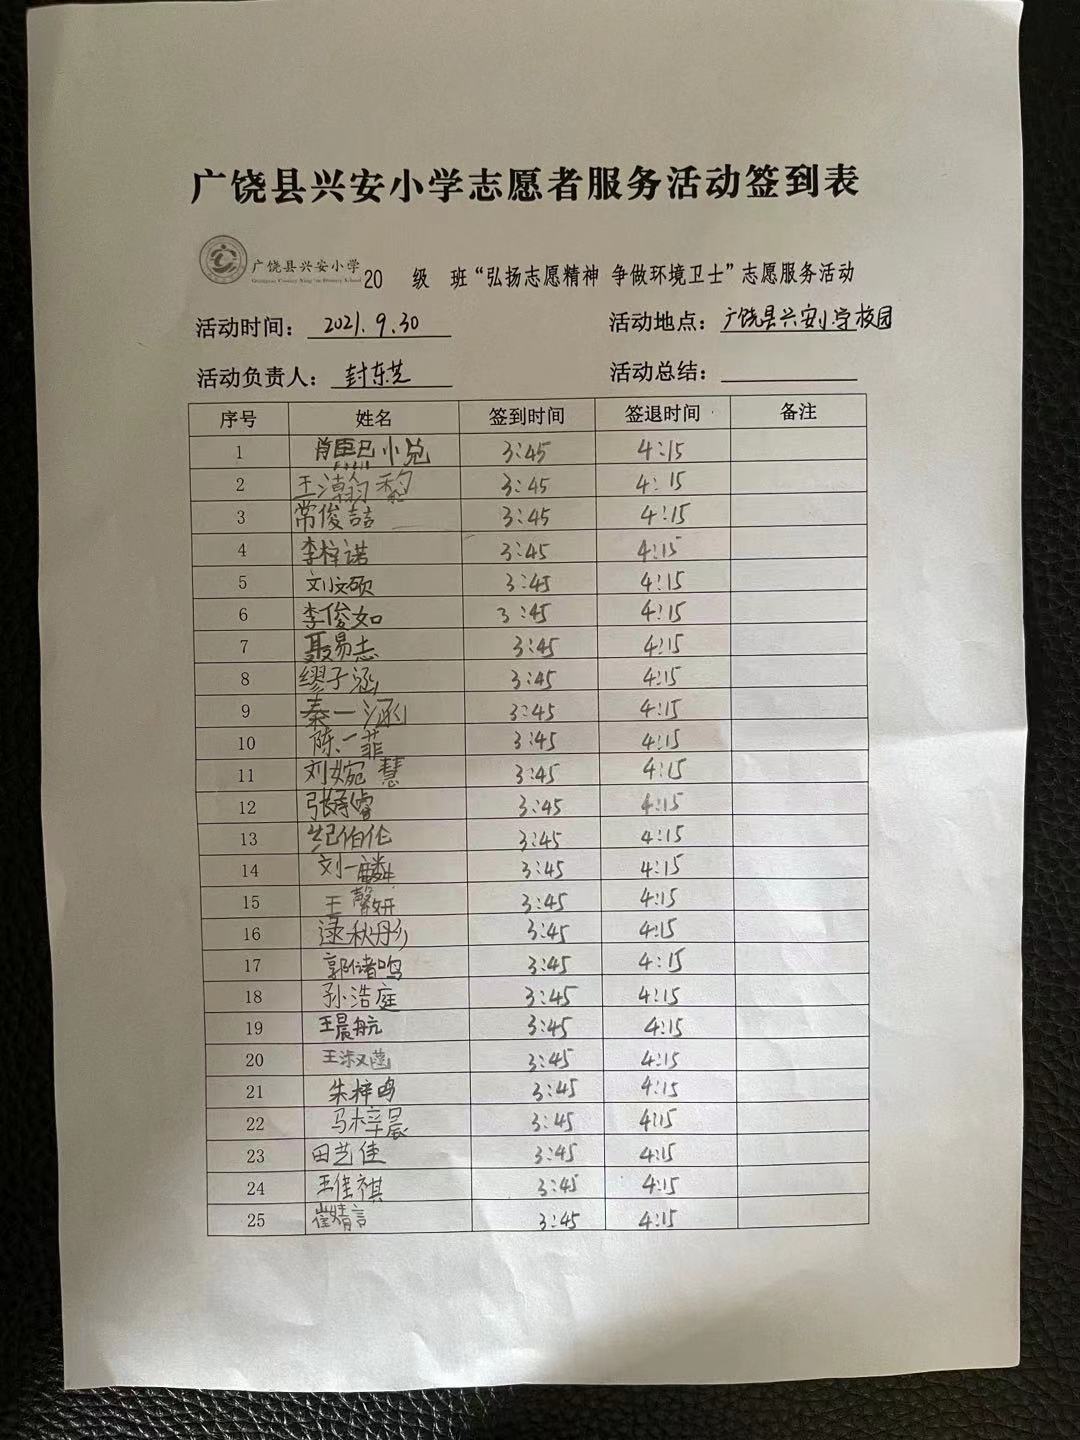 广饶县兴安小学志愿者服务活动签到表
广饶县兴安小学
20 级 班“弘扬志愿精神 争做环境卫士”志愿服务活动
活动时间：2021.9.30 活动地点：广饶县兴安小学校园
活动负责人：封东芝 活动总结：
序号 姓名 签到时间 签退时间 备注
1 肖熙小兑 3:45 4:15
2 王漭翰黎 3:45 4:15
3 常俊喆 3:45 4:15
4 李梓诺 3:45 4:15
5 刘文硕 3:45 4:15
6 李俊如 3:45 4:15
7 聂易志 3:45 4:15
8 缪子涵 3:45 4:15
9 秦一涵 3:45 4:15
10 陈一菲 3:45 4:15
11 刘婉慧 3:45 4:15
12 张承睿 3:45 4:15
13 纪伯伦 3:45 4:15
14 刘一麟 3:45 4:15
15 王馨妍 3:45 4:15
16 逯秋彤 3:45 4:15
17 郭鸣 3:45 4:15
18 孙浩庭 3:45 4:15
19 王晨航 3:45 4:15
20 王淑 3:45 4:15
21 朱梓鸣 3:45 4:15
22 马梓晨 3:45 4:15
23 田艺佳 3:45 4:15
24 王佳祺 3:45 4:15
25 崔婧言 3:45 4:15